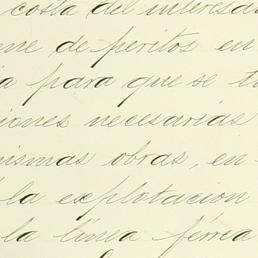 costa del interesa
me de peritos en
a para que se t
iones necesarias
ismas obras, en-
la explotacion
la línea férrea